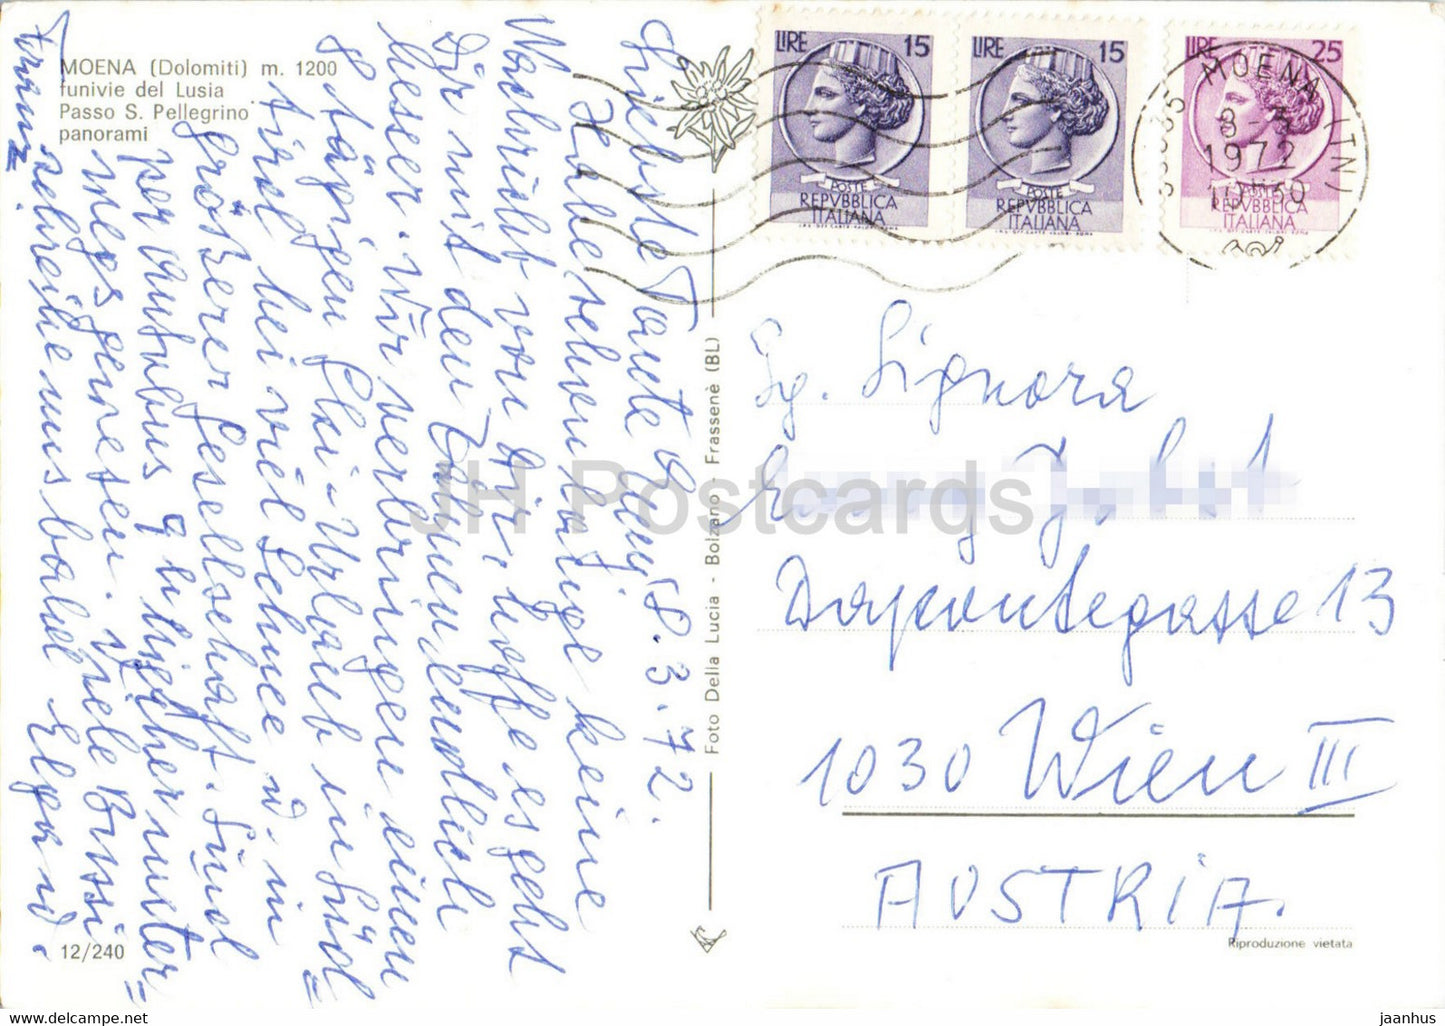 MOENA (Dolomiti) m. 1200
funivie del Lusia
Passo S. Pellegrino
panorami
8.3.72.
Liebste Tante
Habe schon lange keine
Nachricht von Dir, hoffe es geht
Dir mit den Zähnen endlich
besser. Wir verbringen einen
8 tägigen Schi-Urlaub in Süd=
tirol bei viel Sehnee u. in
größerer Gesellschaft. Sind
per Autobus 9 h hieher unter=
wegs gewesen. Viele Bussi
schreibe uns bald
Franz
12/240
Foto Della Lucia - Bolzano - Frassenè (BL)
LIRE 15
POSTE
REPVBBLICA
ITALIANA
LIRE 15
POSTE
REPVBBLICA
ITALIANA
LIRE 25
POSTE
REPVBBLICA
ITALIANA
MOENA (TN)
8-3
1972
Sg. Signora
Dapontegasse 13
1030 Wien III
AUSTRIA.
Riproduzione vietata
JH Postcards
jaanhus
www.delcampe.net